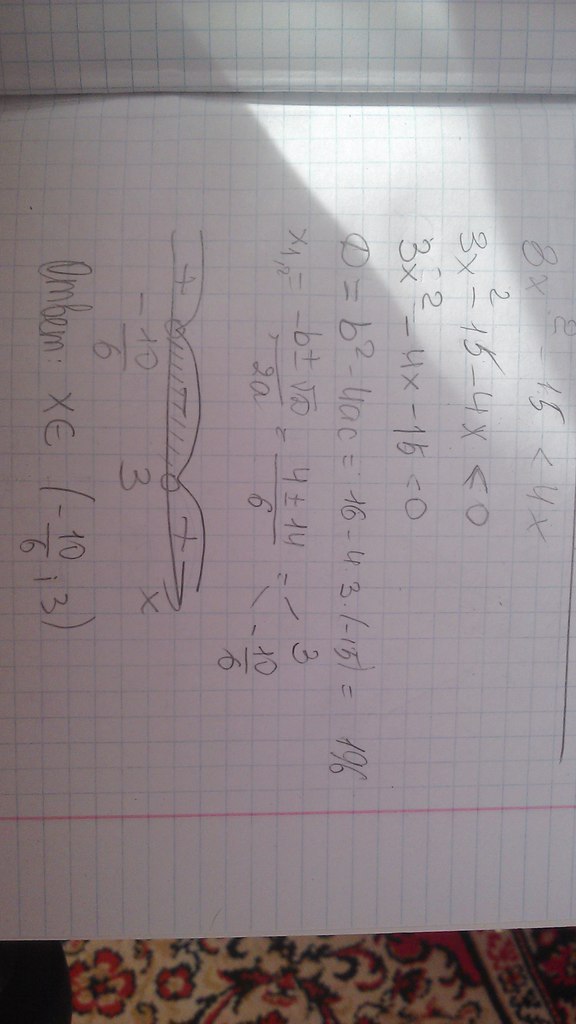 3x² - 15 < 4x
3x² - 15 - 4x < 0
3x² - 4x - 15 < 0
D = b² - 4ac = 16 - 4·3·(-15) = 196
x₁,₂ = (-b ± √D)/2a = (4 ± 14)/6 = 3
-10/6
+ - +
-10/6 3 x
Ответ: x∈ (-10/6; 3)